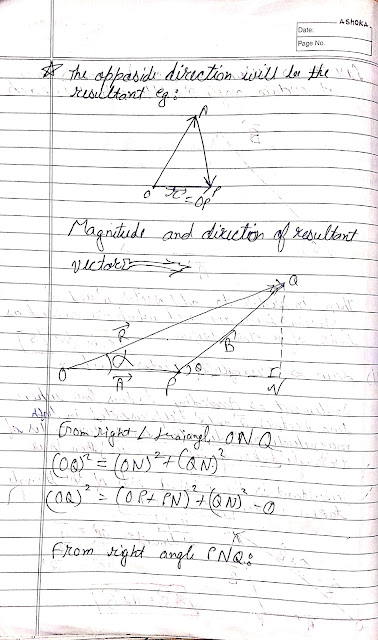 ASHOKA
Date:
Page No.
☆ The oppaside direction will be the
resultant eg:
A
O
P
= OP
Magnitude and direction of resultant
vector
Q
R
B
α
θ
O
A
P
N
From right ∠ ONQ
(OQ)² = (ON)² + (QN)²
(OQ)² = (OP + PN)² + (QN)² - ①
From right angle PNQ: